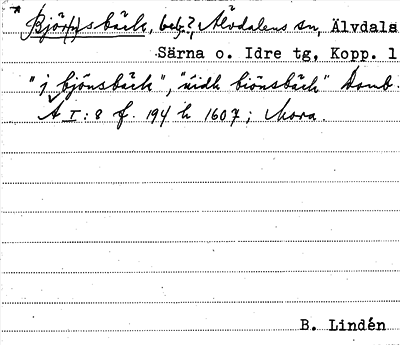 * Bjö(r)nsbäck, beb.?, Älvdalens sn, Älvdals
Särna o. Idre tg, Kopp. l
"j bjönsbäck", "uidh biönsbäck" Domb.
Ä I:8 f. 194 h 1607; Mora.
B. Lindén